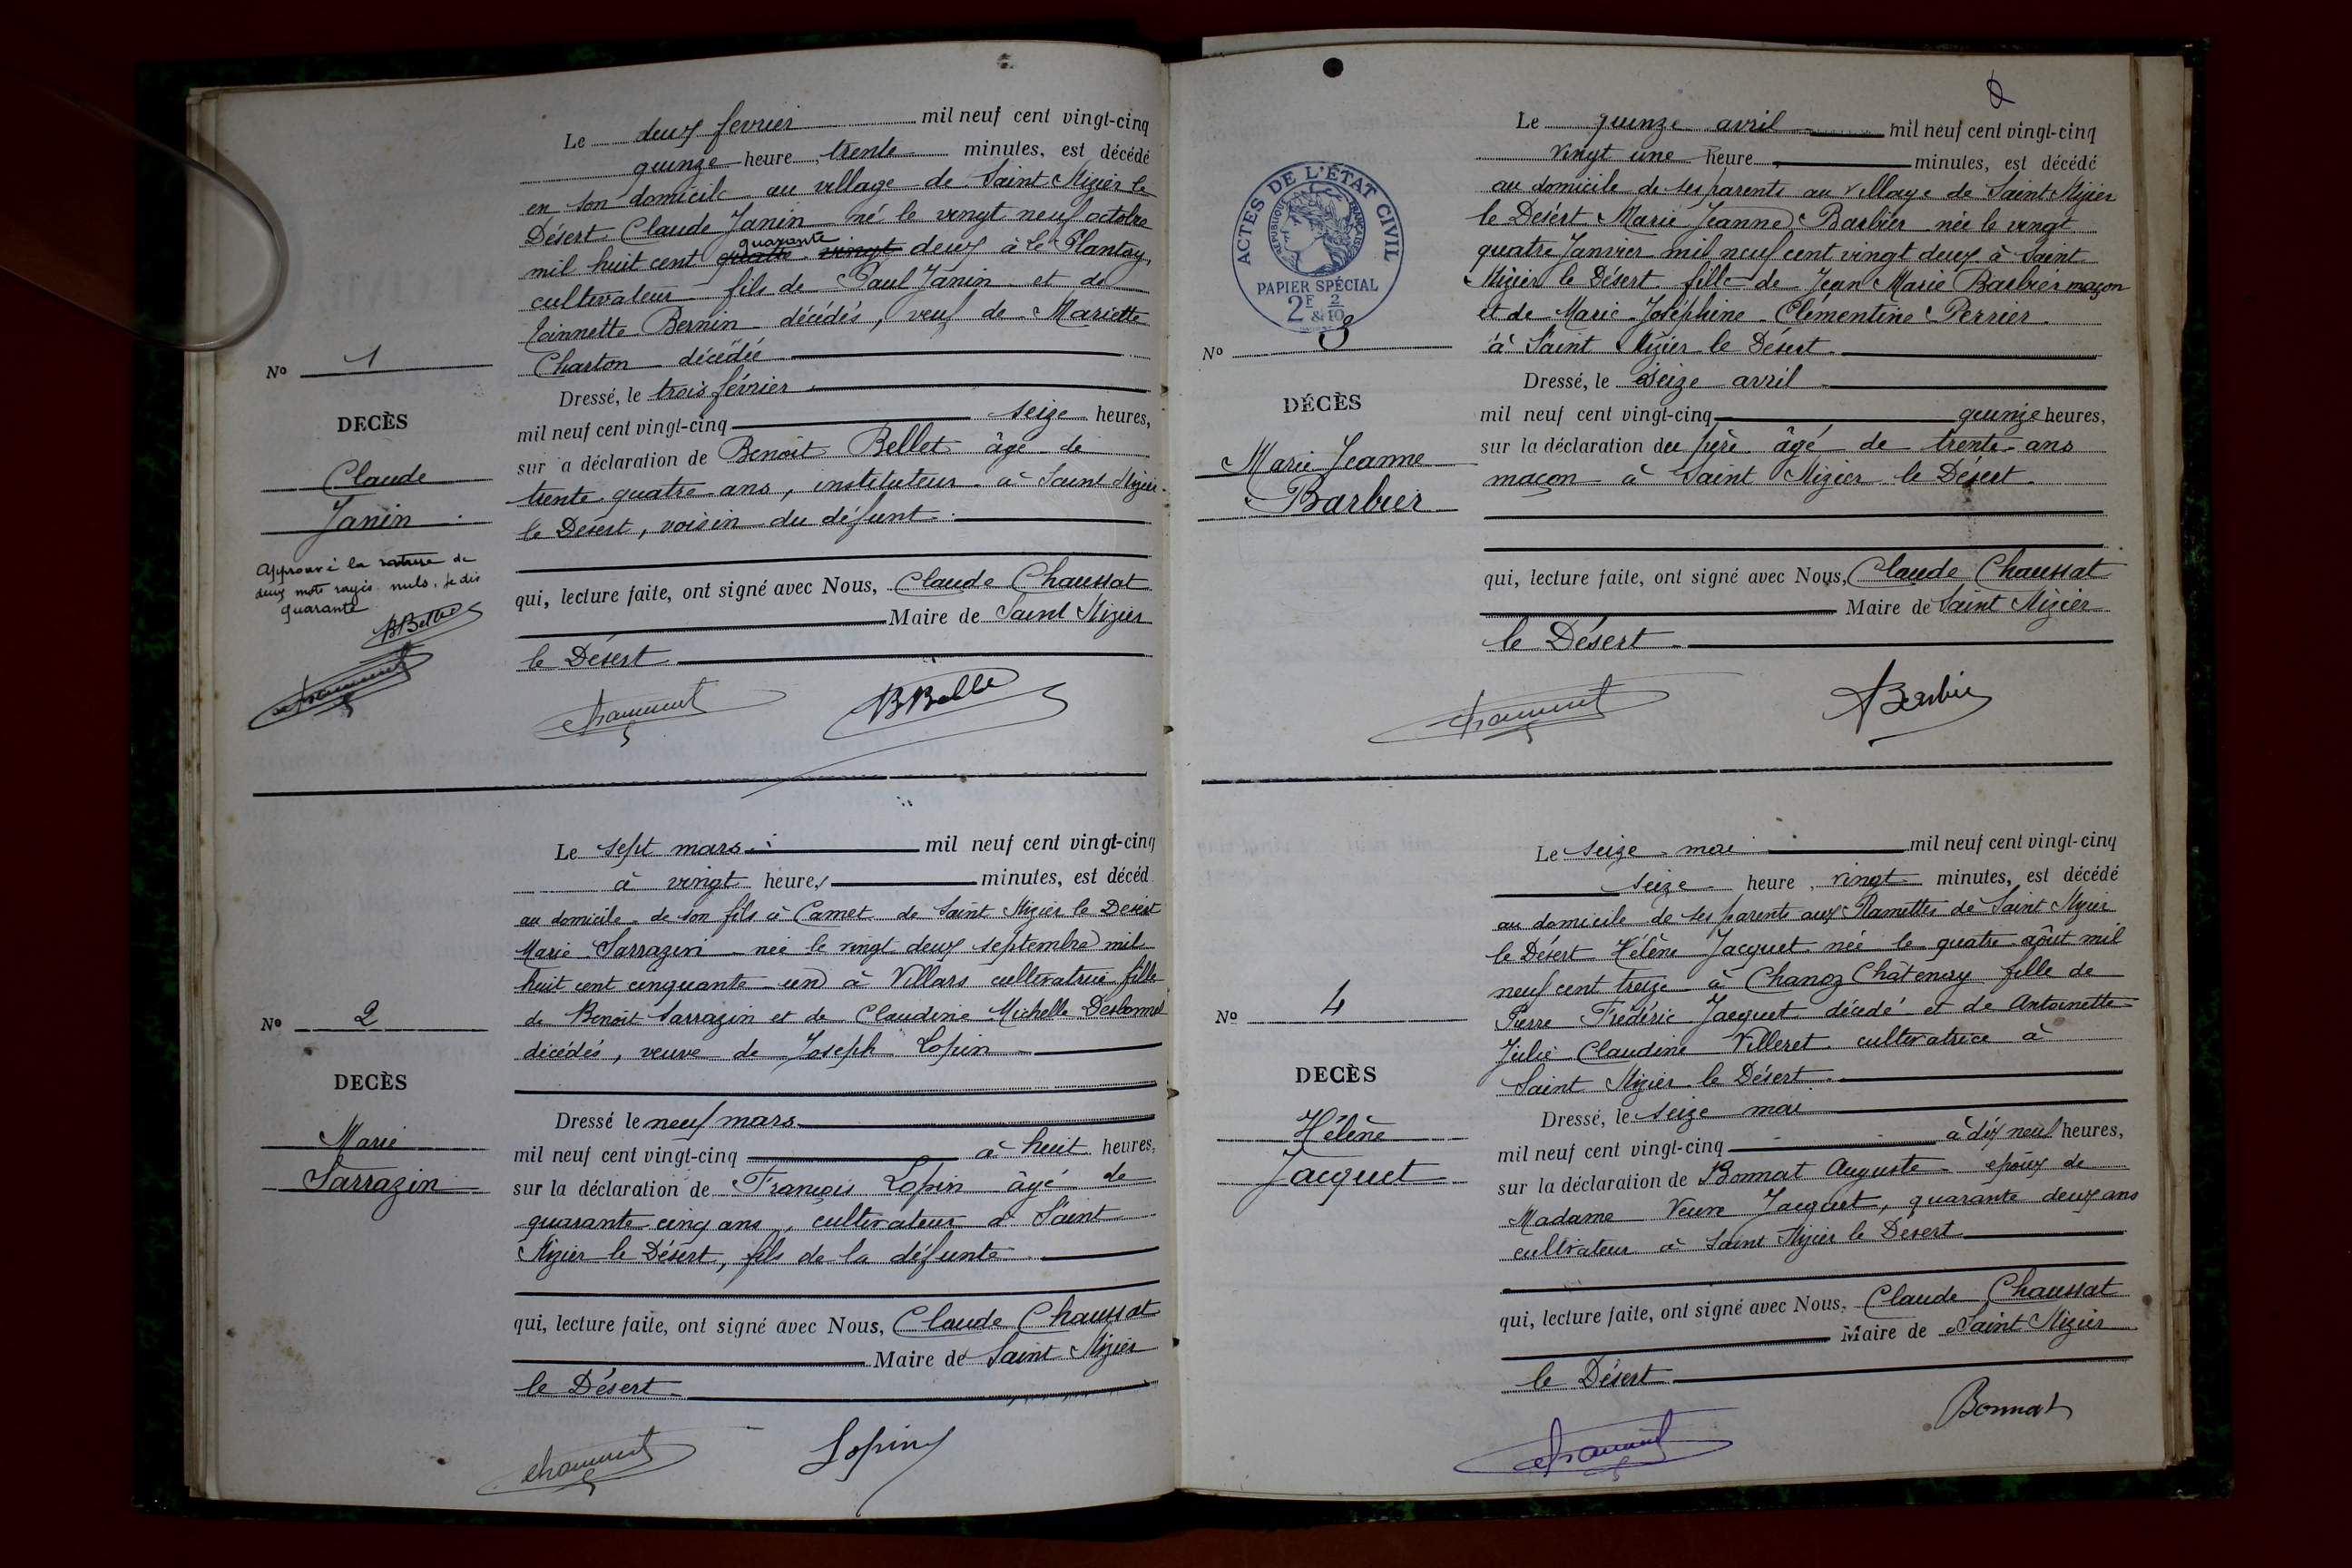 Le deux fevrier mil neuf cent vingt-cinq
quinze heure trente minutes, est décédé
en son domicile au village de Saint Nizier le
Désert Claude Janin né le vingt neuf octobre
quarante
mil huit cent quatre vingt deux à Le Plantay,
cultivateur fils de Paul Janin et de
Joinnette Bernin décédés, veuf de Mariette
Charton décédée
No 1
Dressé, le trois février
DECÈS
mil neuf cent vingt-cinq seize heures,
sur a déclaration de Benoit Bellet âgé de
Claude
trente quatre ans, instituteur à Saint Nizier
Janin
le Désert, voisin du défunt
Approuvé la rature de
deux mots rayés nuls. Je dis
quarante
BBelle
qui, lecture faite, ont signé avec Nous, Claude Chaussat
Maire de Saint Nizier
le Désert
BBelle
Le sept mars mil neuf cent vingt-cinq
à vingt heures minutes, est décéd
au domicile de son fils à Camet de Saint Nizier le Desert
Marie Sarrazin née le vingt deux septembre mil
huit cent cinquante un à Villars cultivatrice fille
de Benoit Sarrazin et de Claudine Michelle Desbonnel
No 2
décédés, veuve de Joseph Lopin
DECÈS
Dressé le neuf mars
Marie
mil neuf cent vingt-cinq à huit heures,
Sarrazin
sur la déclaration de François Lopin âgé de
quarante cinq ans, cultivateur à Saint
Nizier le Désert, fils de la défunte
qui, lecture faite, ont signé avec Nous, Claude Chaussat
Maire de Saint Nizier
le Désert
Lopin
Le quinze avril mil neuf cent vingt-cinq
vingt une heure minutes, est décédé
au domicile de ses parents au village de Saint Nizier
le Desért Marie Jeanne Barbier née le vingt
quatre Janvier mil neuf cent vingt deux à Saint
Nizier le Désert fille de Jean Marie Barbier maçon
et de Marie Joséphine Clémentine Perrier
à Saint Nizier le Désert
ACTES DE L'ÉTAT CIVIL
RÉPUBLIQUE FRANÇAISE
PAPIER SPÉCIAL
2F & 2/10
No 3
Dressé, le seize avril
DÉCÈS
mil neuf cent vingt-cinq quinze heures,
sur la déclaration deu père âgé de trente ans
Marie Jeanne
maçon à Saint Nizier le Désert
Barbier
qui, lecture faite, ont signé avec Nous, Claude Chaussat
Maire de Saint Nizier
le Désert
Barbier
Le seize mai mil neuf cent vingt-cinq
seize heure vingt minutes, est décédé
au domicile de ses parents aux Ramettes de Saint Nizier
le Désert Hélène Jacquet née le quatre août mil
neuf cent treize à Chanoz Châtenay fille de
Pierre Frédéric Jacquet décédé et de Antoinette
No 4
Julie Claudine Villeret cultivatrice à
Saint Nizier le Désert
DECÈS
Dressé, le seize mai
Hélène
mil neuf cent vingt-cinq à dix neuf heures,
Jacquet
sur la déclaration de Bonnat Auguste époux de
Madame Veuve Jacquet, quarante deux ans
cultivateur à Saint Nizier le Désert
qui, lecture faite, ont signé avec Nous, Claude Chaussat
Maire de Saint Nizier
le Désert
Bonnat